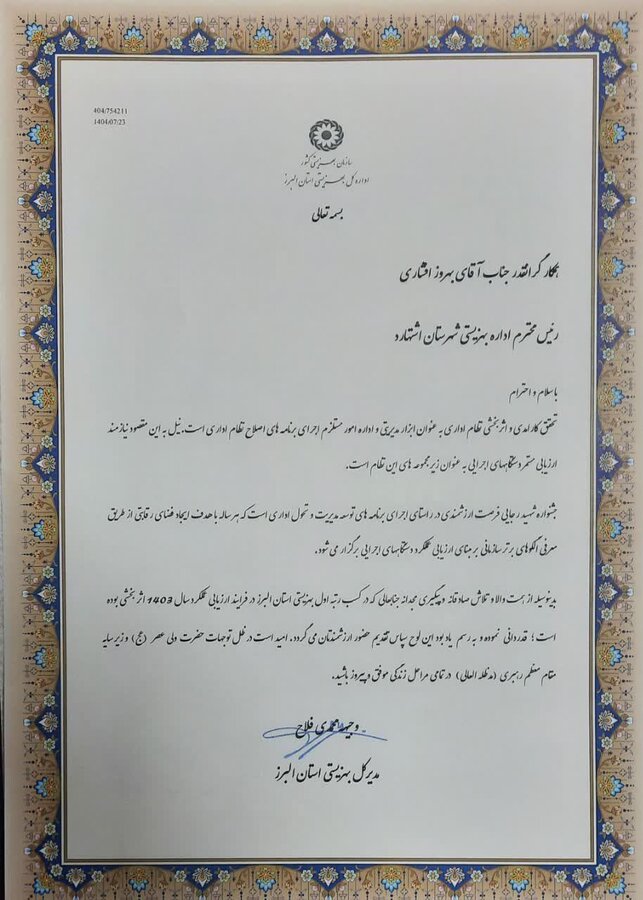 404/754211
1404/07/23
سازمان بهزیستی کشور
اداره کل بهزیستی استان البرز
بسمه تعالی
همکار گرانقدر جناب آقای بهروز افشاری
رئیس محترم اداره بهزیستی شهرستان اشتهارد
با سلام و احترام
تحقق کارآمدی و اثر بخشی نظام اداری به عنوان ابزار مدیریتی و اداره امور مستلزم اجرای برنامه های اصلاح نظام اداری است. نیل به این مقصود نیازمند
ارزیابی مستمر دستگاههای اجرایی به عنوان زیر مجموعه های این نظام است.
جشنواره شهید رجایی فرصت ارزشمندی در راستای اجرای برنامه های توسعه مدیریت و تحول اداری است که هر ساله با هدف ایجاد فضای رقابتی از طریق
معرفی الگوهای برتر سازمانی بر مبنای ارزیابی عملکرد دستگاههای اجرایی برگزار می شود.
بدینوسیله از همت والا و تلاش صادقانه و پیگیری مجدانه جنابعالی که در کسب رتبه اول بهزیستی استان البرز در فرایند ارزیابی عملکرد سال 1403 اثر بخشی بوده
است ؛ قدردانی نموده و به رسم یادبود این لوح سپاس تقدیم حضور ارزشمندتان می گردد. امید است در ظل توجهات حضرت ولی عصر (عج) و زیر سایه
مقام معظم رهبری (مدظله العالی) در تمامی مراحل زندگی موفق و پیروز باشید.
وجیهه محمدی فلاح
مدیرکل بهزیستی استان البرز